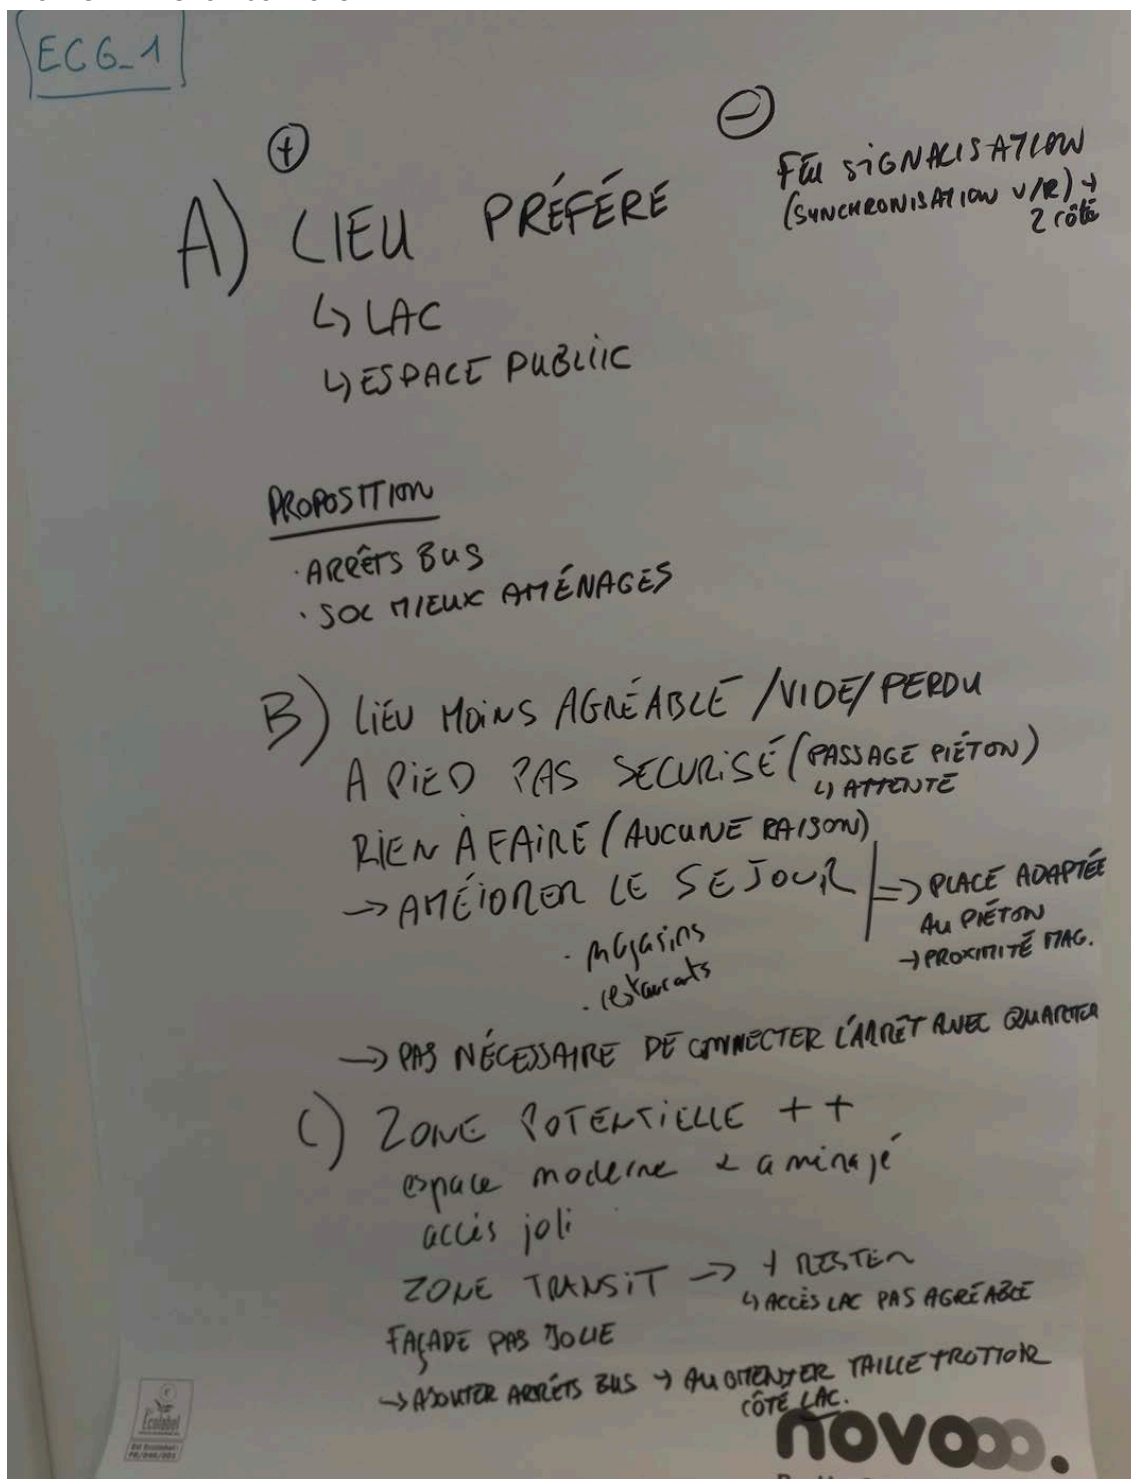 ECG_1
⊕
⊖
A) LIEU PRÉFÉRÉ
FEU SIGNALISATION
(SYNCHRONISATION V/R) →
2 côté
↳ LAC
↳ ESPACE PUBLIIC
PROPOSITION
· ARRÊTS BUS
· SOL MIEUX AMÉNAGES
B) LIEU MOINS AGRÉABLE /VIDE/ PERDU
A PIED PAS SECURISÉ (PASSAGE PIÉTON)
↳ ATTENTE
RIEN À FAIRE (AUCUNE RAISON)
→ AMÉIORER LE SEJOUR
· magasins
· restaurants
=> PLACE ADAPTÉE
AU PIÉTON
→ PROXIMITÉ MAG.
→ PAS NÉCESSAIRE DE CONNECTER L'ARRÊT AVEC QUARTIER
C) ZONE POTENTIELLE ++
espace moderne & aminajé
accès joli
ZONE TRANSIT → + RESTER
↳ ACCÈS LAC PAS AGRÉABLE
FAÇADE PAS JOLIE
→ AJOUTER ARRÊTS BUS → AUGMENTER TAILLE TROTTOIR
CÔTÉ LAC.
Ecolabel
novooo.